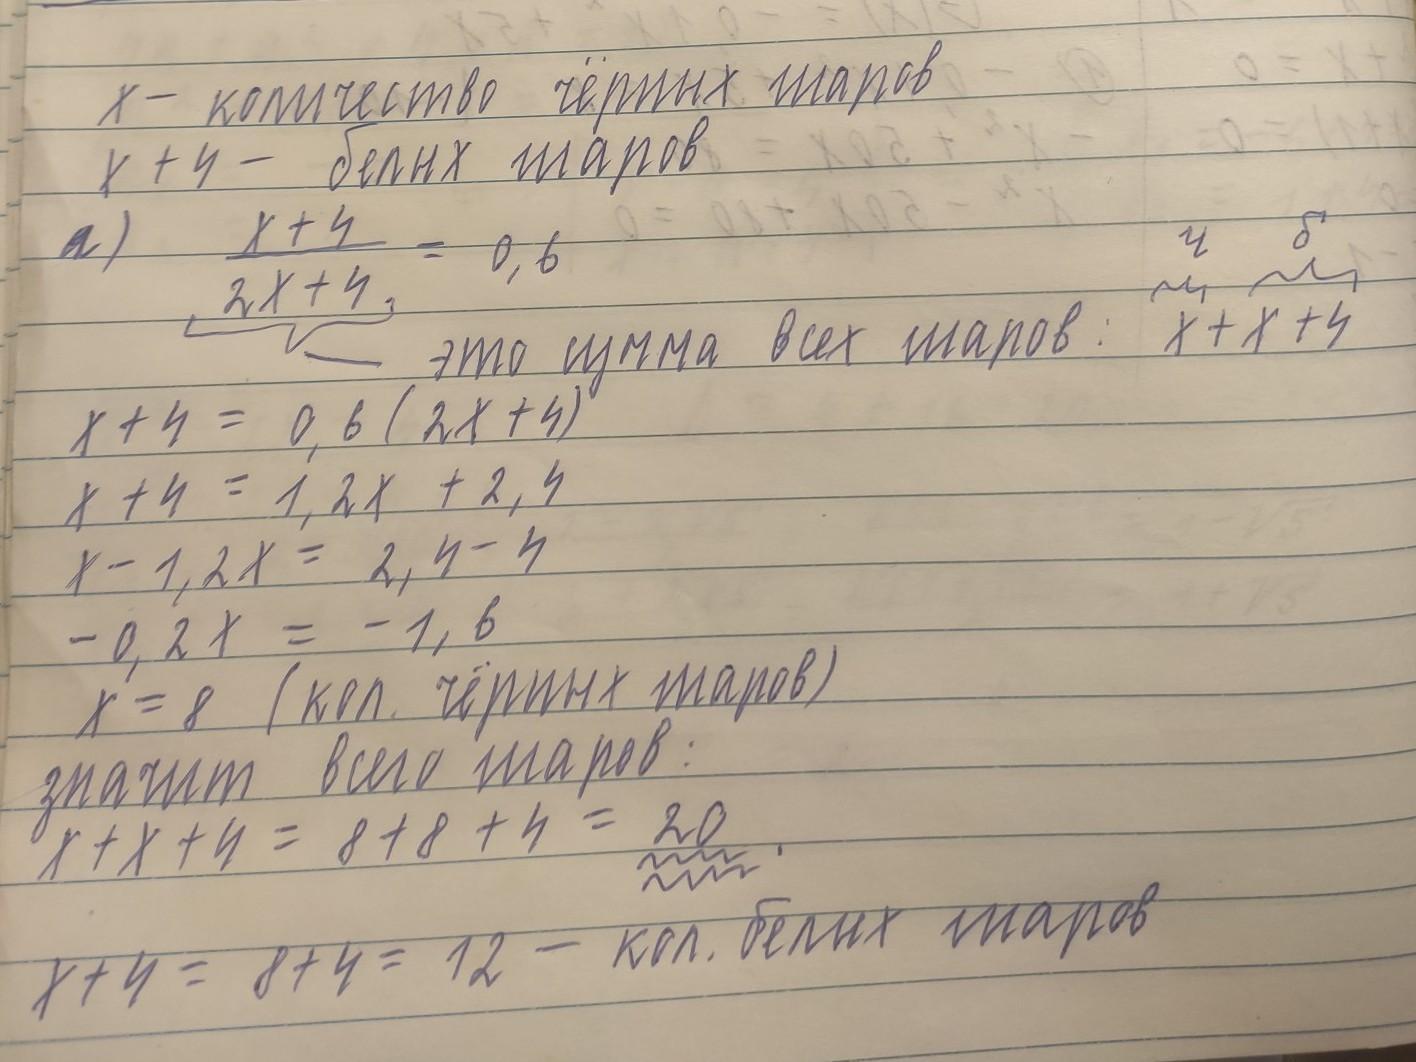 x – количество чёрных шаров
x + 4 – белых шаров
а) x + 4 / 2x + 4 = 0,6
ч б
это сумма всех шаров: x + x + 4
x + 4 = 0,6 (2x + 4)
x + 4 = 1,2x + 2,4
x - 1,2x = 2,4 - 4
-0,2x = -1,6
x = 8 (кол. чёрных шаров)
значит всего шаров:
x + x + 4 = 8 + 8 + 4 = 20.
x + 4 = 8 + 4 = 12 – кол. белых шаров